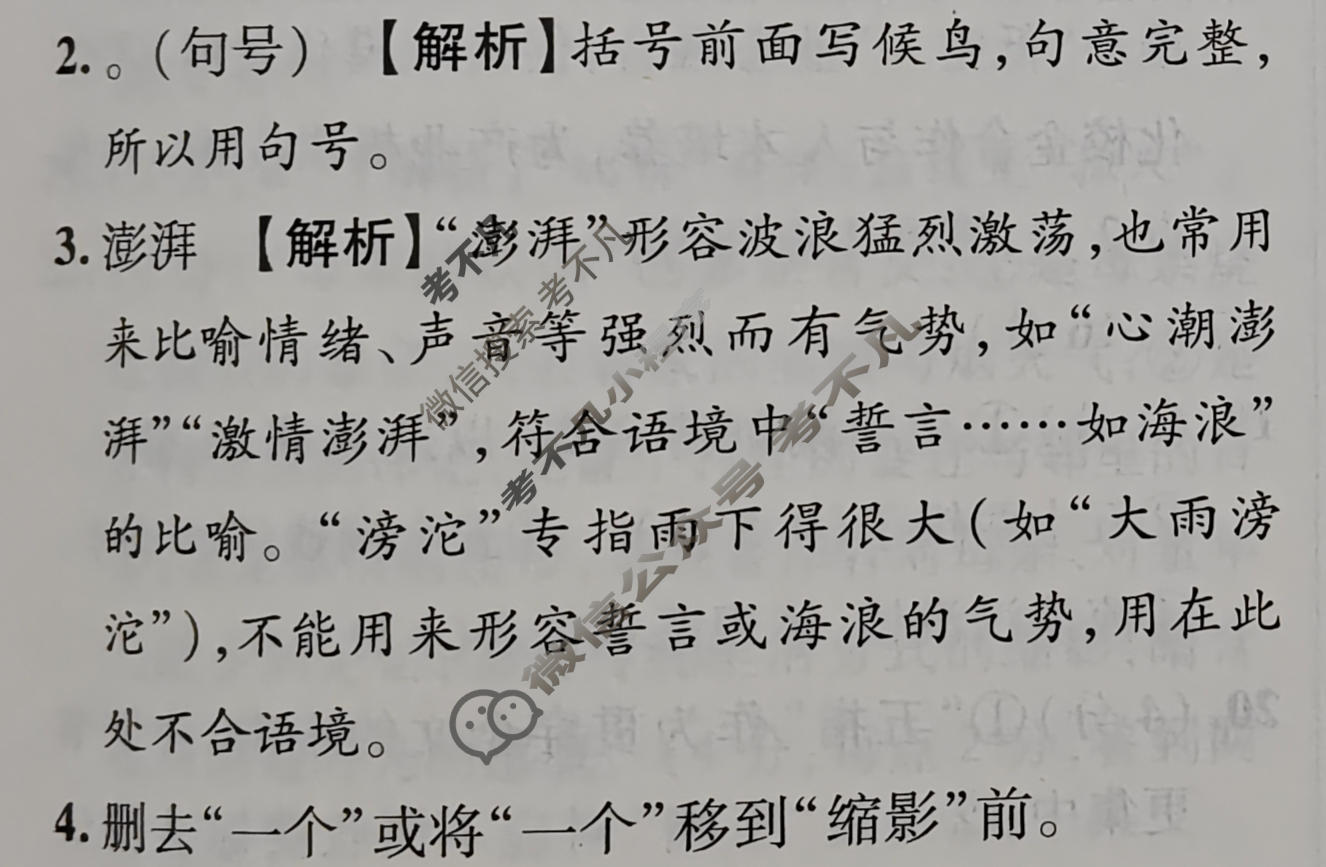 2. 。(句号) 【解析】括号前面写候鸟,句意完整,
所以用句号。
3. 澎湃 【解析】“澎湃”形容波浪猛烈激荡,也常用
来比喻情绪、声音等强烈而有气势,如“心潮澎
湃”“激情澎湃”,符合语境中“誓言……如海浪”
的比喻。“滂沱”专指雨下得很大(如“大雨滂
沱”),不能用来形容誓言或海浪的气势,用在此
处不合语境。
4. 删去“一个”或将“一个”移到“缩影”前。
考不凡
微信搜索 考不凡
考不凡小程序
微信公众号 考不凡